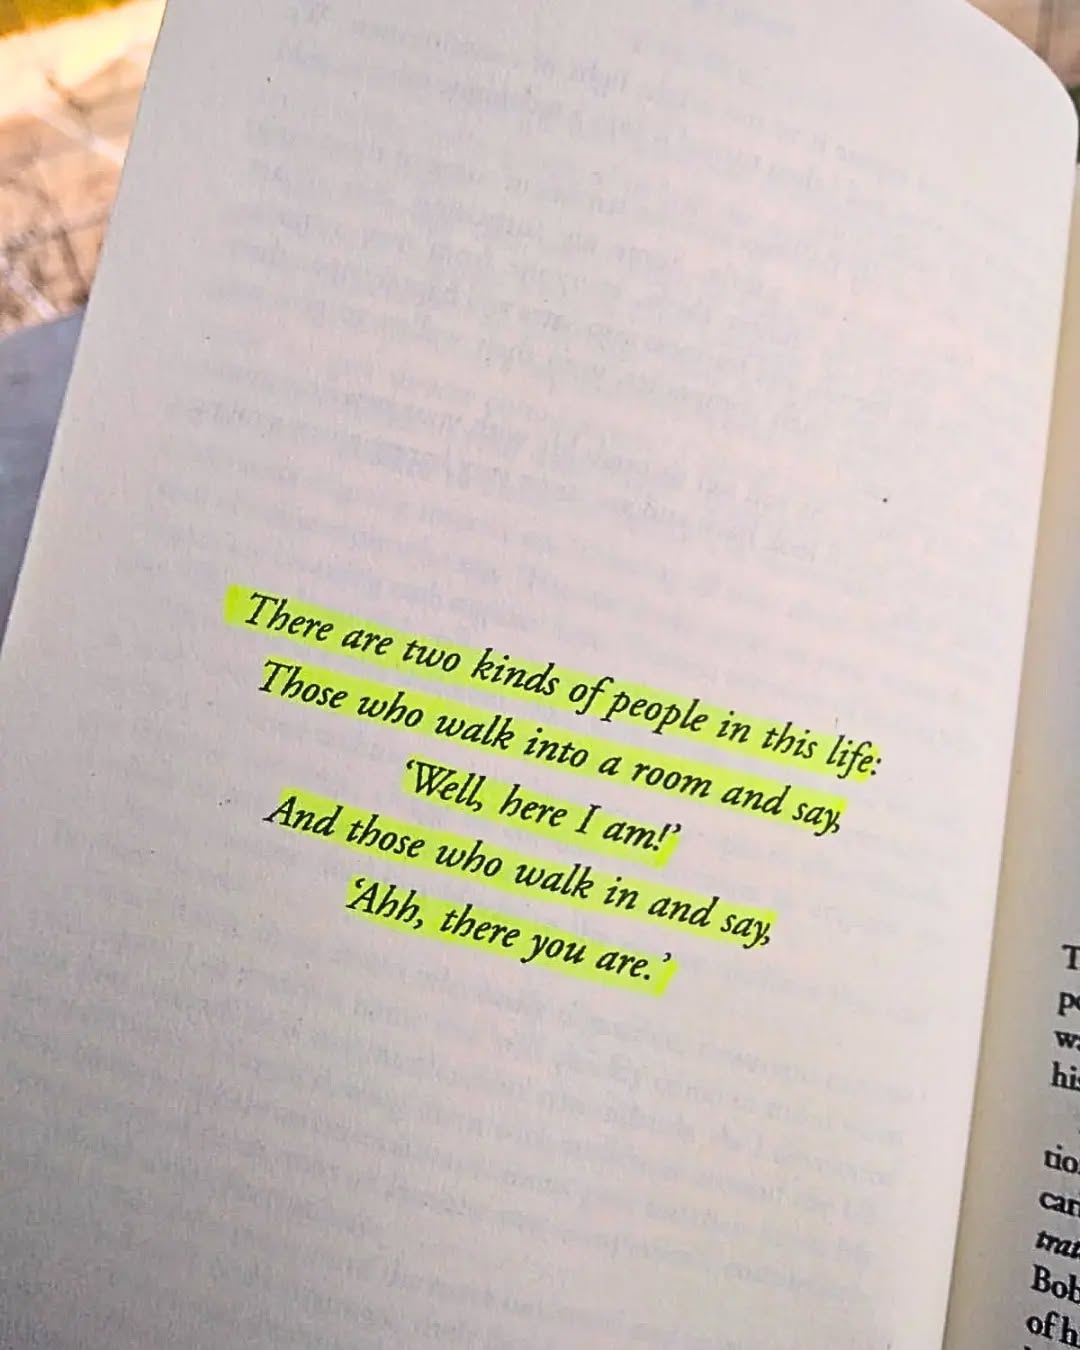 There are two kinds of people in this life:
Those who walk into a room and say,
‘Well, here I am!’
And those who walk in and say,
‘Ahh, there you are.’
his
of h